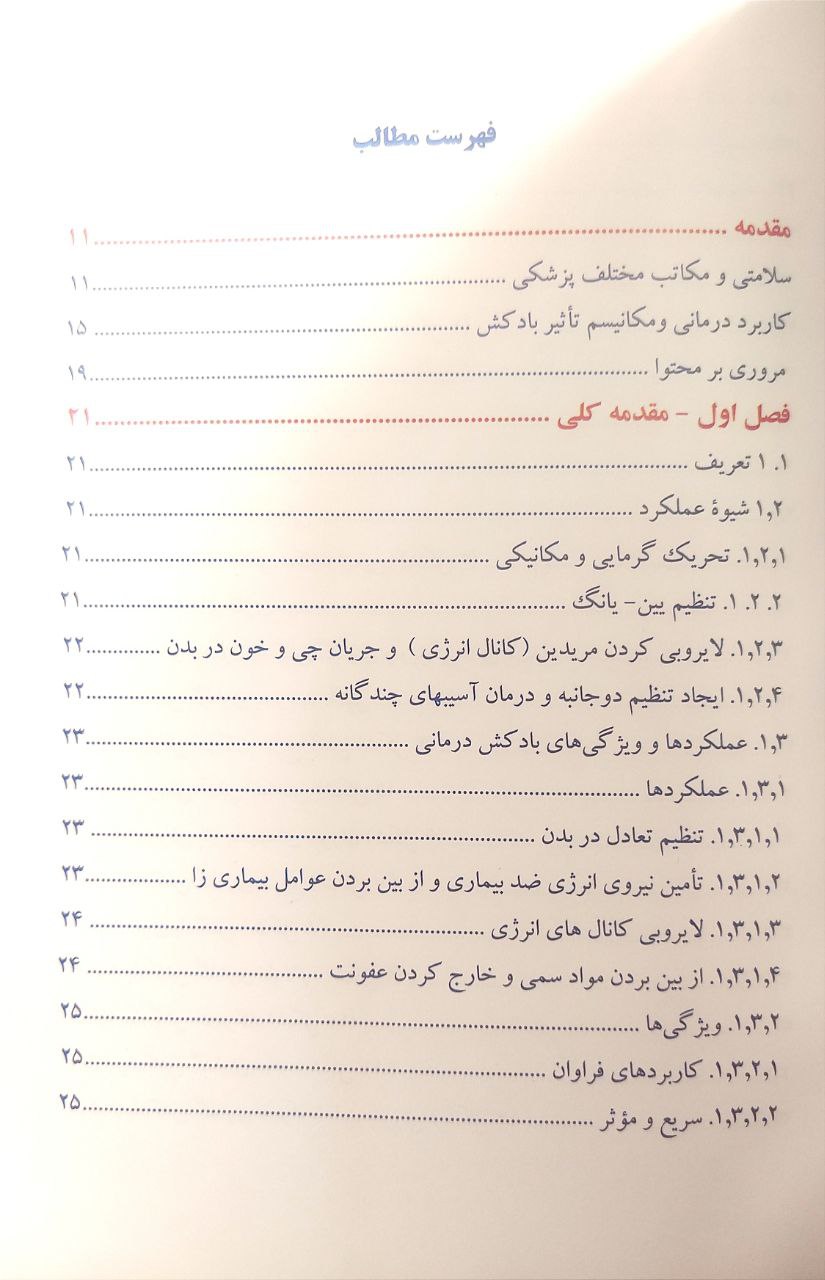 فهرست مطالب
مقدمه ........................................ ۱۱
سلامتی و مکاتب مختلف پزشکی ........................................ ۱۱
کاربرد درمانی ومکانیسم تأثیر بادکش ........................................ ۱۵
مروری بر محتوا ........................................ ۱۹
فصل اول – مقدمه کلی ........................................ ۲۱
۱. ۱ تعریف ........................................ ۲۱
۱,۲ شیوۀ عملکرد ........................................ ۲۱
۱,۲,۱. تحریک گرمایی و مکانیکی ........................................ ۲۱
۲. ۲. ۱. تنظیم یین– یانگ ........................................ ۲۱
۱,۲,۳. لایروبی کردن مریدین (کانال انرژی ) و جریان چی و خون در بدن .............. ۲۲
۱,۲,۴. ایجاد تنظیم دوجانبه و درمان آسیبهای چندگانه ........................................ ۲۲
۱,۳. عملکردها و ویژگی‌های بادکش درمانی ........................................ ۲۳
۱,۳,۱. عملکردها ........................................ ۲۳
۱,۳,۱,۱. تنظیم تعادل در بدن ........................................ ۲۳
۱,۳,۱,۲. تأمین نیروی انرژی ضد بیماری و از بین بردن عوامل بیماری زا .................. ۲۳
۱,۳,۱,۳. لایروبی کانال های انرژی ........................................ ۲۴
۱,۳,۱,۴. از بین بردن مواد سمی و خارج کردن عفونت ........................................ ۲۴
۱,۳,۲. ویژگی‌ها ........................................ ۲۵
۱,۳,۲,۱. کاربردهای فراوان ........................................ ۲۵
۱,۳,۲,۲. سریع و مؤثر ........................................ ۲۵